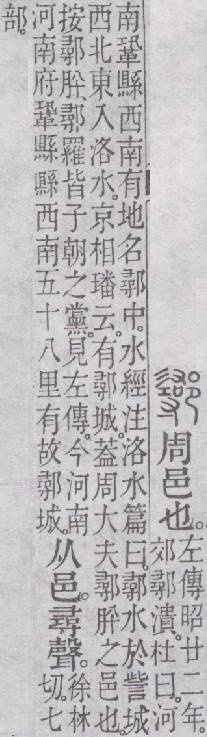 鄩周邑也。左傳昭廿二年。
郊鄩潰。杜曰。河
南鞏縣西南有地名鄩中。水經注洛水篇曰。鄩水於訾城
西北東入洛水。京相璠云。有鄩城。蓋周大夫鄩肸之邑也。
按鄩肸、鄩羅皆子朝之黨。見左傳。今河南
河南府鞏縣縣西南五十八里有故鄩城。
从邑。尋聲。徐林
切。七
部。